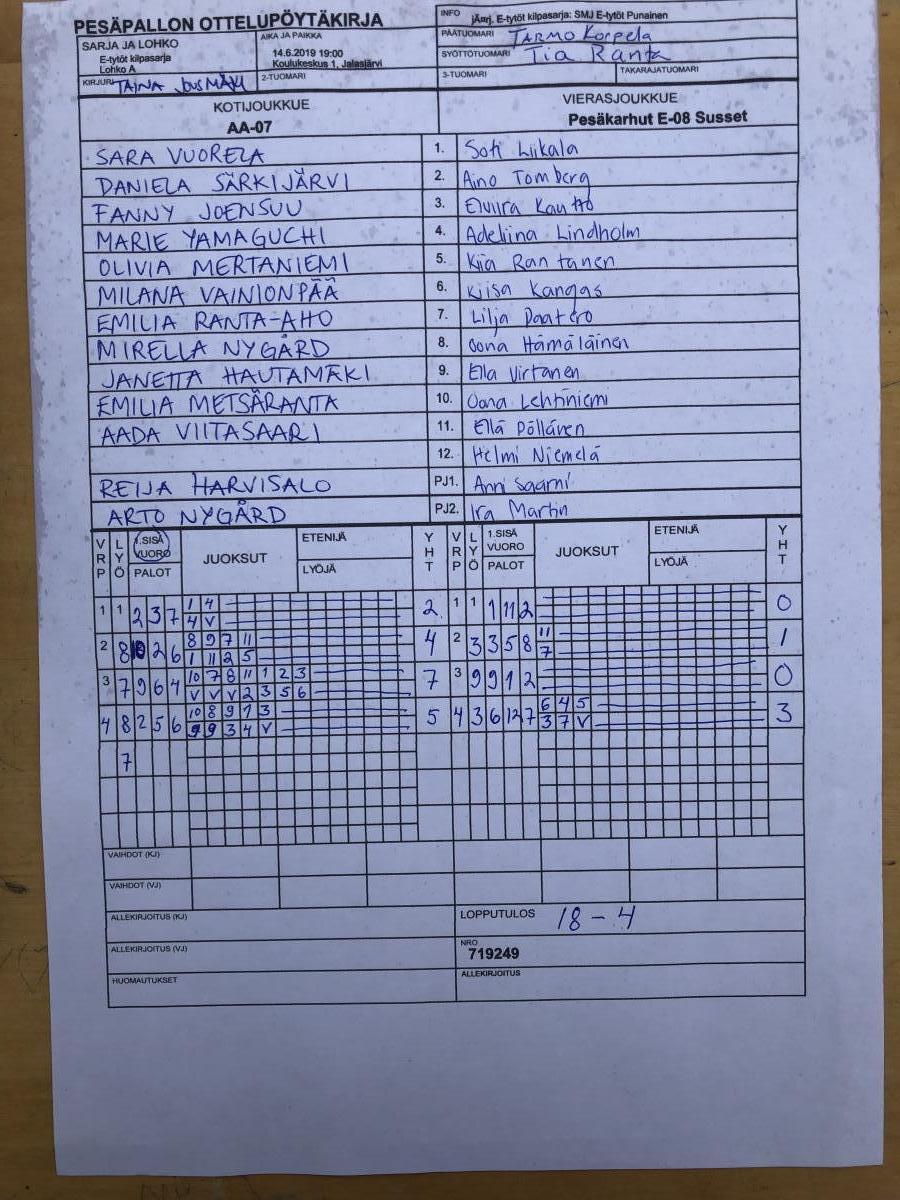 PESÄPALLON OTTELUPÖYTÄKIRJA
INFO jÄnrj. E-tytöt kilpasarja: SMJ E-tytöt Punainen
SARJA JA LOHKO
E-tytöt kilpasarja
Lohko A
AIKA JA PAIKKA
14.6.2019 19:00
Koulukeskus 1, Jalasjärvi
PÄÄTUOMARI TARMO Korpela
SYÖTTÖTUOMARI Tia Ranta
KIRJURI TAINA
2-TUOMARI
3-TUOMARI
TAKARAJATUOMARI
KOTIJOUKKUE
AA-07
VIERASJOUKKUE
Pesäkarhut E-08 Susset
SARA VUORELA 1. Sofi Liikala
DANIELA SÄRKIJÄRVI 2. Aino Tomberg
FANNY JOENSUU 3. Elviira Kautto
MARIE YAMAGUCHI 4. Adeliina Lindholm
OLIVIA MERTANIEMI 5. Kiia Rantanen
MILANA VAINIONPÄÄ 6. Kiisa Kangas
EMILIA RANTA-AHO 7. Lilja Paatero
MIRELLA NYGÅRD 8. Oona Hämäläinen
JANETTA HAUTAMÄKI 9. Ella Virtanen
EMILIA METSÄRANTA 10. Oona Lehtiniemi
AADA VIITASAARI 11. Ella Pöllänen
12. Helmi Niemelä
REIJA HARVISALO PJ1. Anni Saarni
ARTO NYGÅRD PJ2. Ira Martin
VRP LYÖ 1.SISÄ VUORO PALOT JUOKSUT ETENIJÄ LYÖJÄ YHT VRP LYÖ 1.SISÄ VUORO PALOT JUOKSUT ETENIJÄ LYÖJÄ YHT
1 1 2 3 7 1 4 2 1 1 1 11 2 0
4 V
2 8 10 2 6 8 9 7 11 4 2 3 3 5 8 11 1
1 11 2 5 7
3 7 9 6 4 10 7 8 11 1 2 3 7 3 9 9 1 2 0
V V V 2 3 5 6
4 8 2 5 6 10 8 9 1 3 5 4 3 6 12 7 6 4 5 3
9 9 3 4 V 3 7 V
7
VAIHDOT (KJ)
VAIHDOT (VJ)
ALLEKIRJOITUS (KJ)
LOPPUTULOS 18 – 4
ALLEKIRJOITUS (VJ)
NRO
719249
HUOMAUTUKSET
ALLEKIRJOITUS